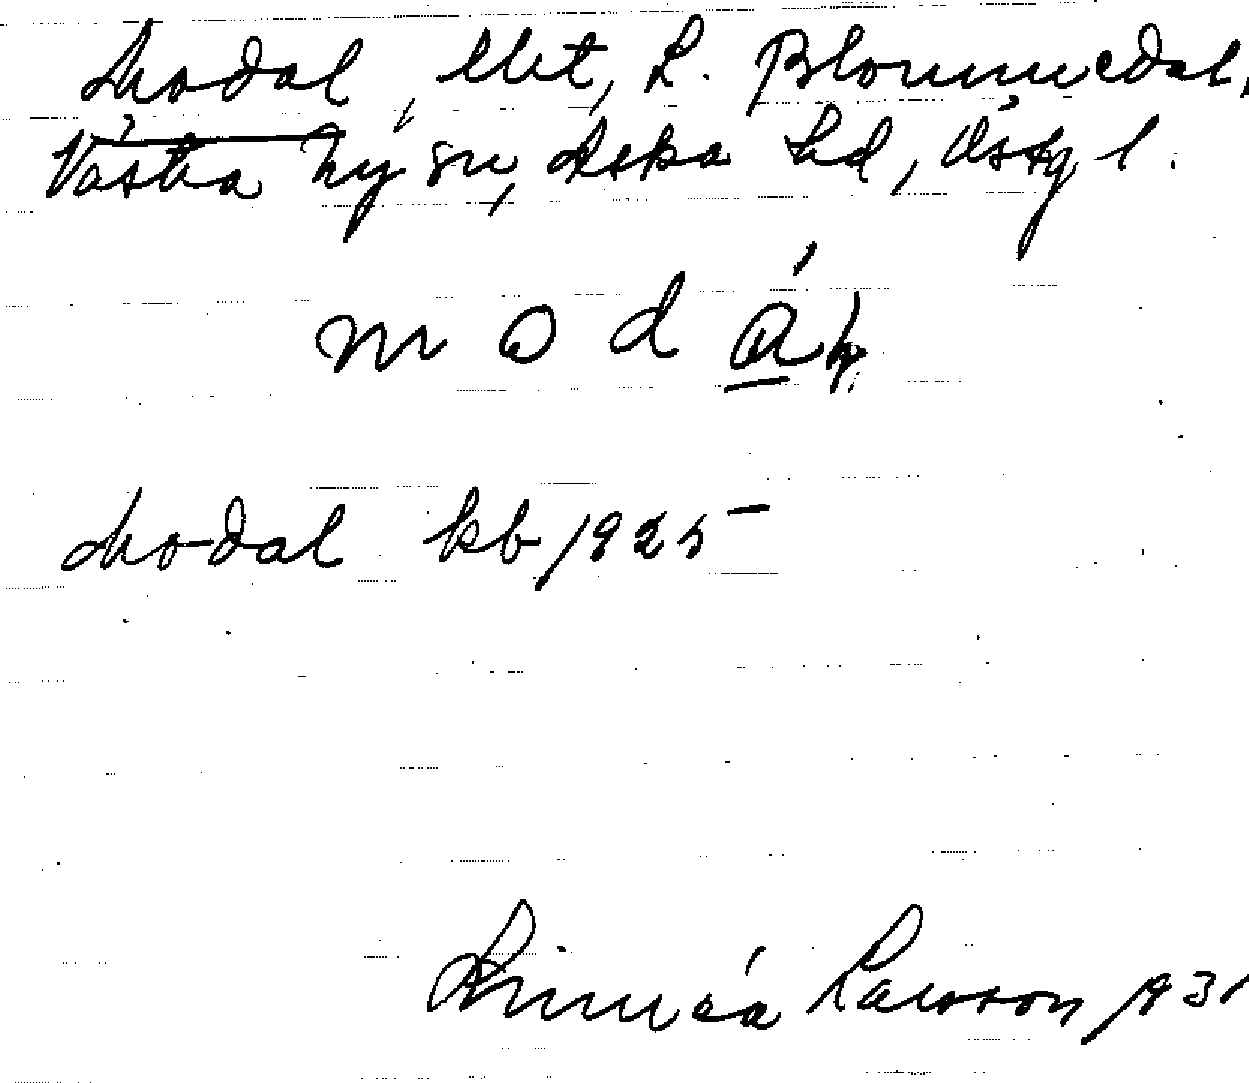 Modal, lht, L. Blommedal,
Västra Ny sn, Aska hd, Östg l.
m o d á
Modal kb 1925
Linnéa Larsson 1931